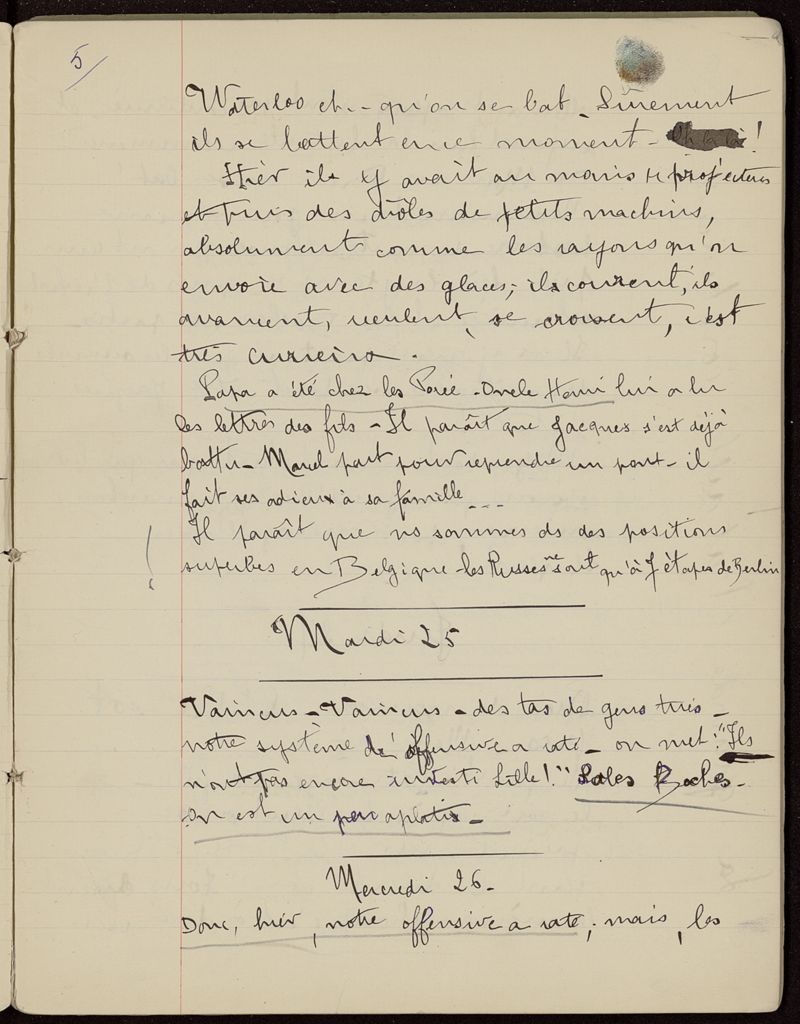 5
Waterloo et -- qu'on se bat. Sûrement
ils se battent en ce moment - Oh la là !
Hier il y avait au moins 14 projecteurs
et puis des drôles de petits machins,
absolument comme les rayons qu'on
envoie avec des glaces; ils courent, ils
avancent, reculent, se croisent, c'est
très curieux.
Papa a été chez les Porée - Oncle Henri lui a lu
les lettres des fils - Il paraît que Jacques s'est déjà
battu - Marcel part pour reprendre un pont - il
fait ses adieux à sa famille ...
Il paraît que ns sommes ds des positions
superbes en Belgique - les Russes ne sont qu'à 7 étapes de Berlin
Mardi 25
Vaincus - Vaincus - des tas de gens tués -
notre système d'offensive a raté - on met : "Ils
n'ont pas encore investi Lille !" Sales Boches -
On est un peu aplatis -
Mercredi 26 -
Donc, hier, notre offensive a raté ; mais, les